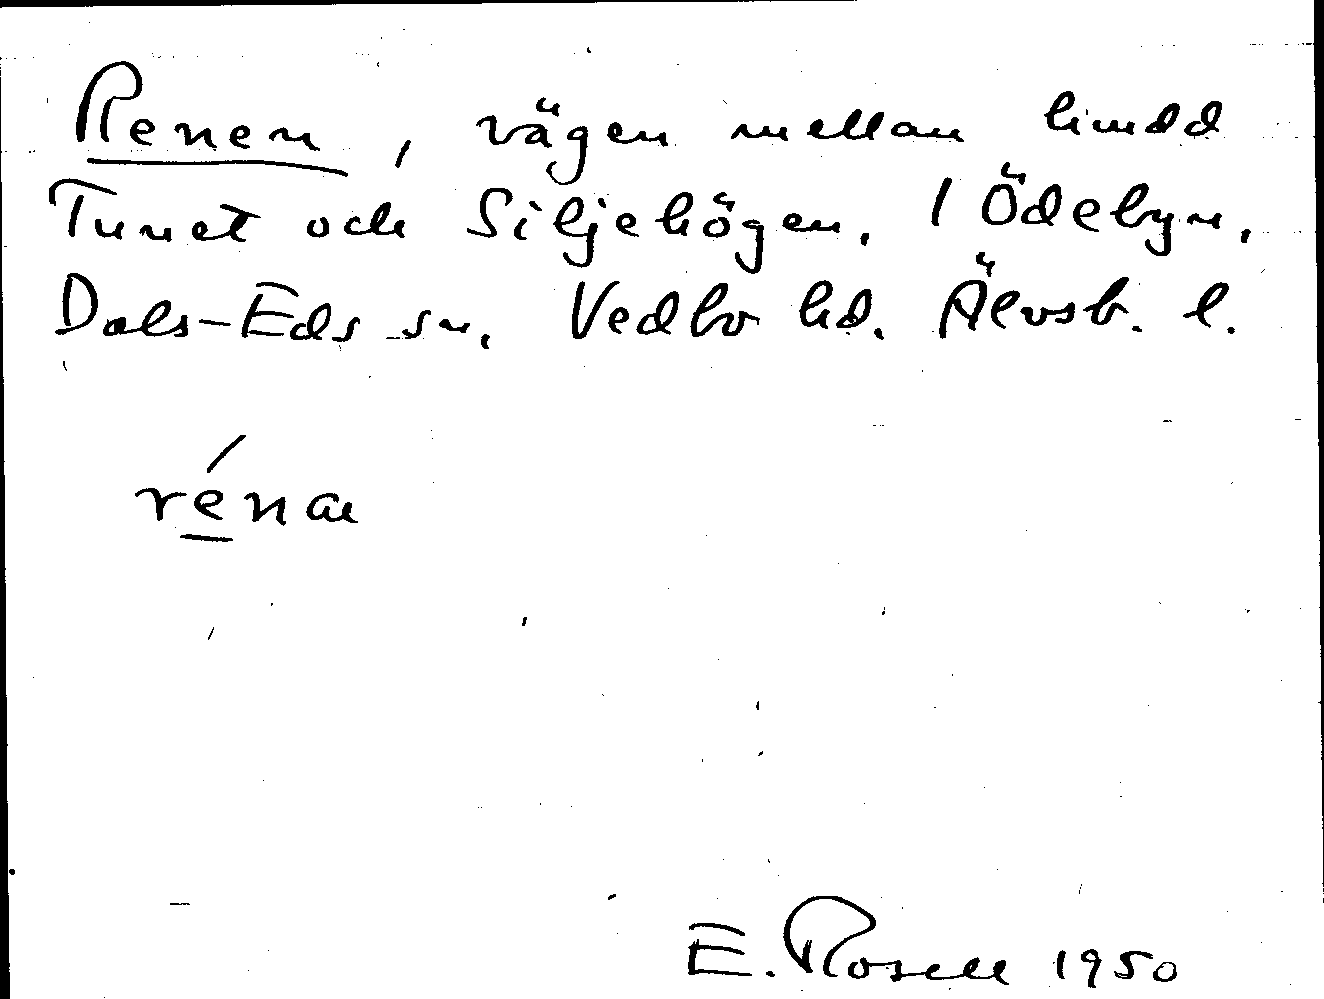 Renen, vägen mellan hmdd
Tunet och Siljehögen. I Ödebyn,
Dals-Eds sn, Vedbo hd. Älvsb. l.
rénaɛ
E. Rosell 1950